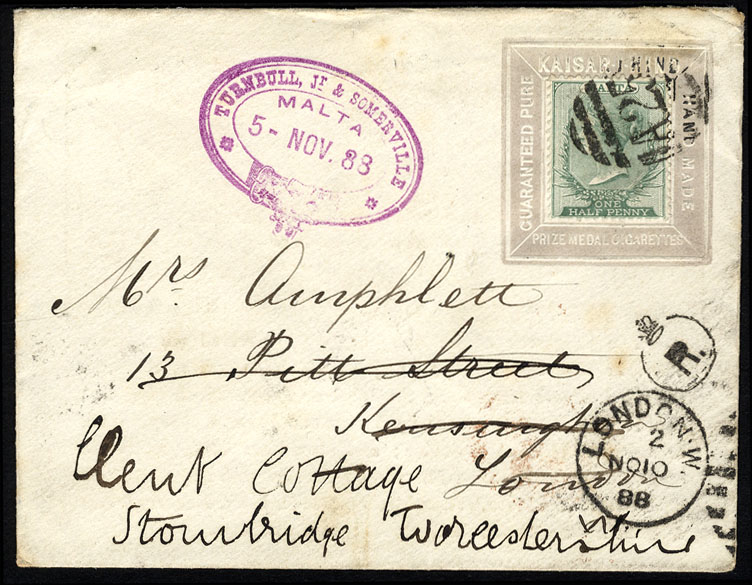 TURNBULL, Jr & SOMERVILLE
MALTA
5- NOV. 88
KAISAR-I-HIND
GUARANTEED PURE
HAND MADE
PRIZE MEDAL CIGARETTES
MALTA
ONE
HALF PENNY
A25
Mrs Amphlett
13 Pitt Street
Kensington
Clent Cottage London
Stourbridge Worcestershire
R.
LONDON·W.
2
NO10
88